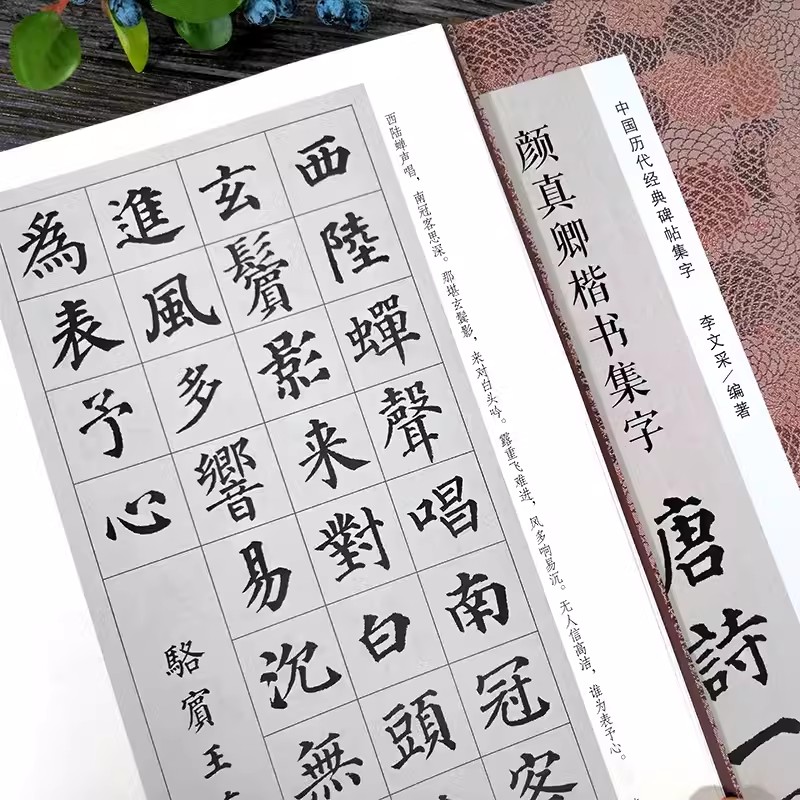 中国历代经典碑帖集字
李文采/编著
颜真卿楷书集字
唐詩一
西陆蝉声唱，南冠客思深。那堪玄鬓影，来对白头吟。露重飞难进，风多响易沉。无人信高洁，谁为表予心。
西陸蟬聲唱南冠客
玄鬢影来對白頭
進風多響易沉無
為表予心
駱賓王